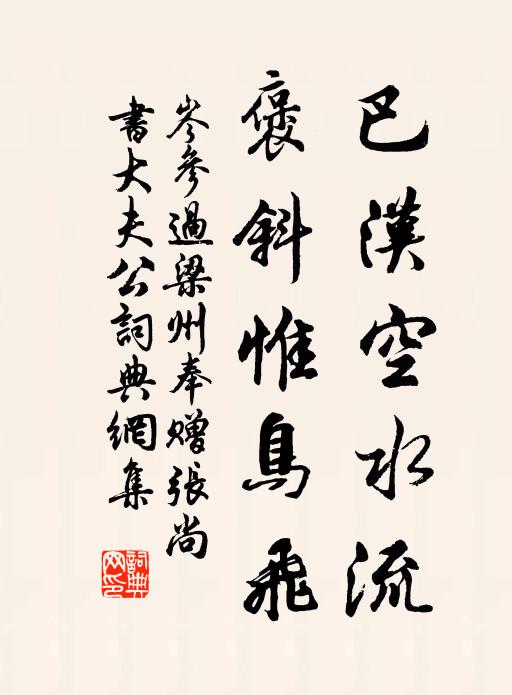 巴漢空水流
褒斜惟鳥飛
岑參過梁州奉贈張尚
書大夫公詞典網集
詞典網印